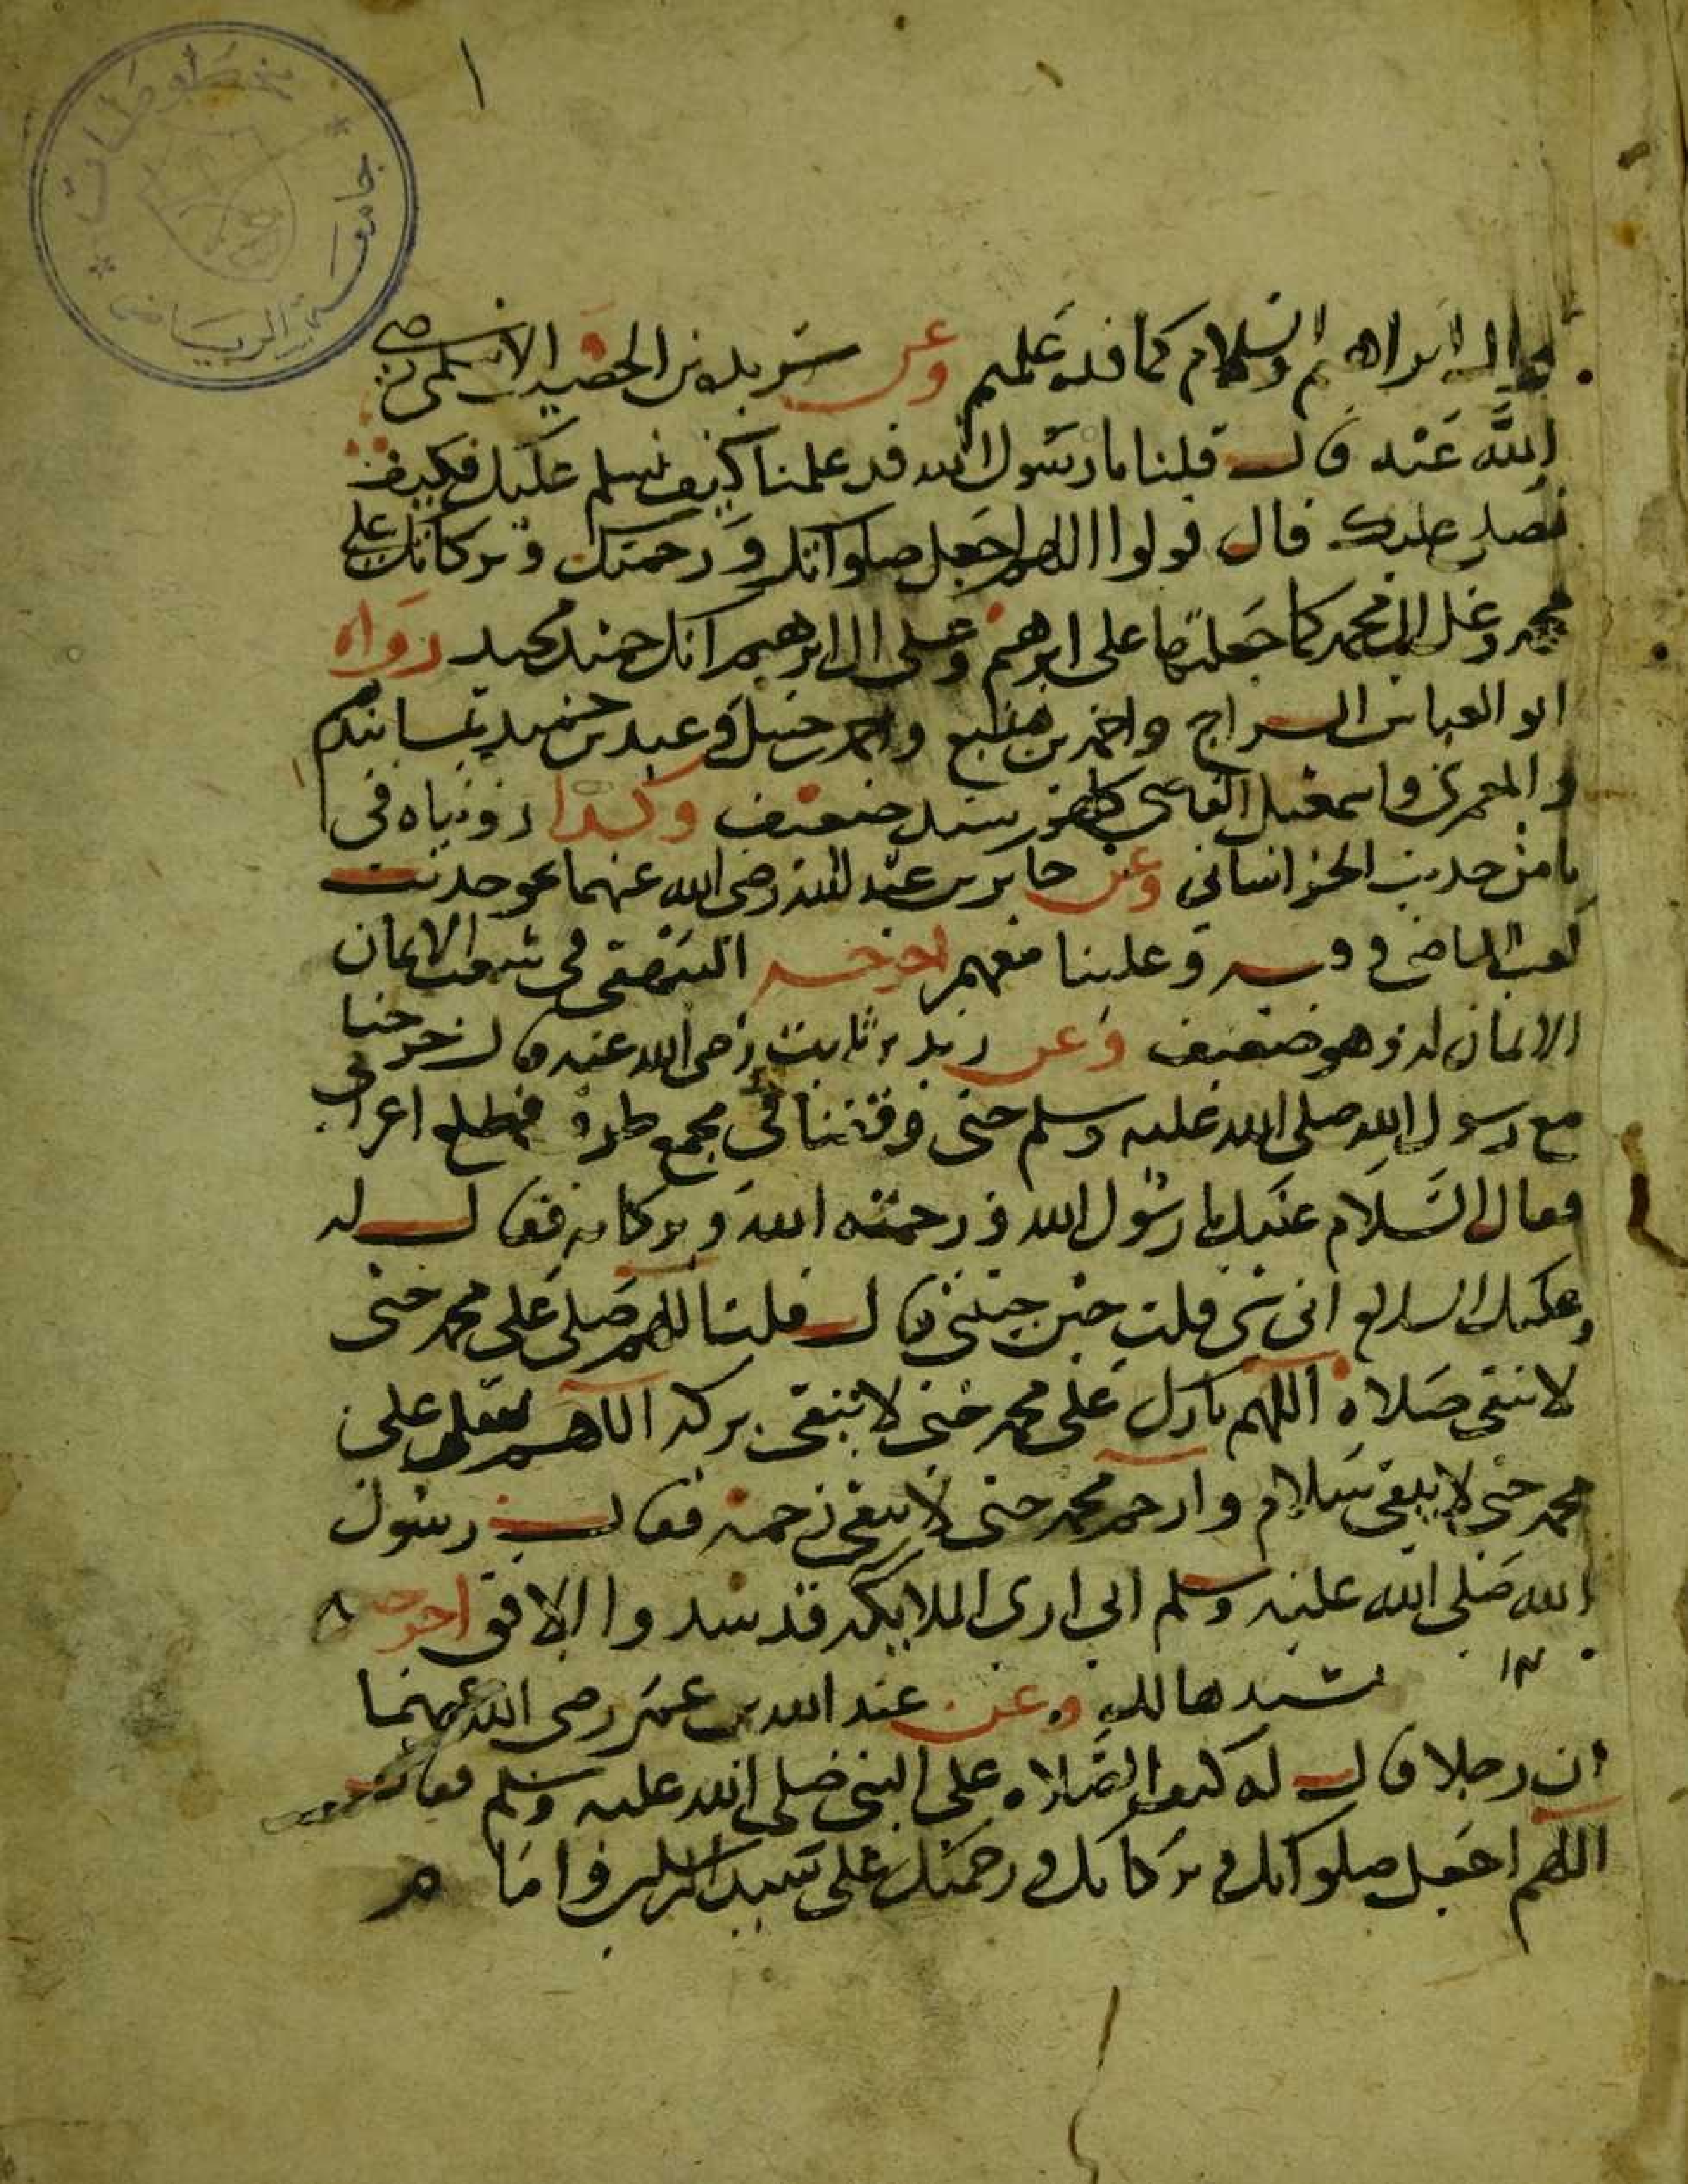 ١
مخطوطات
جامعة الرياض
وال ابراهيم والسلام كما قد علمتم وعن بريده بن الحصيب الاسلمى رضى
الله عنه قال قلنا يا رسول الله قد علمنا كيف نسلم عليك فكيف
نصلى عليك قال قولوا اللهم اجعل صلواتك ورحمتك وبركاتك على
محمد وعلى ال محمد كما جعلتها على ابرهيم وعلى ال ابرهيم انك حميد مجيد رواه
ابو العباس السراج واحمد بن منيع واحمد حنبل وعبد بن حميد بمسانيدهم
والمعمرى واسمعيل القاضى كلهم بسند ضعيف وكذا رويناه فى
من حديث الخراسانى وعن جابر بن عبد الله رضى الله عنهما نحو حديث
كعب الماضى وفيه وعلينا معهم اخرجه البيهقى فى شعب الايمان
الايمان له وهو ضعيف وعن زيد بن ثابت رضى الله عنه قال خرجنا
مع رسول الله صلى الله عليه وسلم حتى وقفنا فى مجمع طرق فطلع اعرابى
فقال السلام عليك يا رسول الله ورحمته الله وبركاته فقال له
وعليك السلام اى شى قلت حين جيتنى قال قلت اللهم صلى على محمد حتى
لا تبقى صلاة اللهم بارك على محمد حتى لا تبقى بركه اللهم سلم على
محمد حتى لا يبقى سلام وارحم محمد حتى لا يبقى رحمة فقال رسول
الله صلى الله عليه وسلم انى ارى الملايكه قد سدوا الافق
وعن عبد الله بن عمر رضى الله عنهما
ان رجلا قال له كيف الصلاه على النبى صلى الله عليه وسلم فقال
اللهم اجعل صلواتك وبركاتك ورحمتك على سيد المرسلين وامام